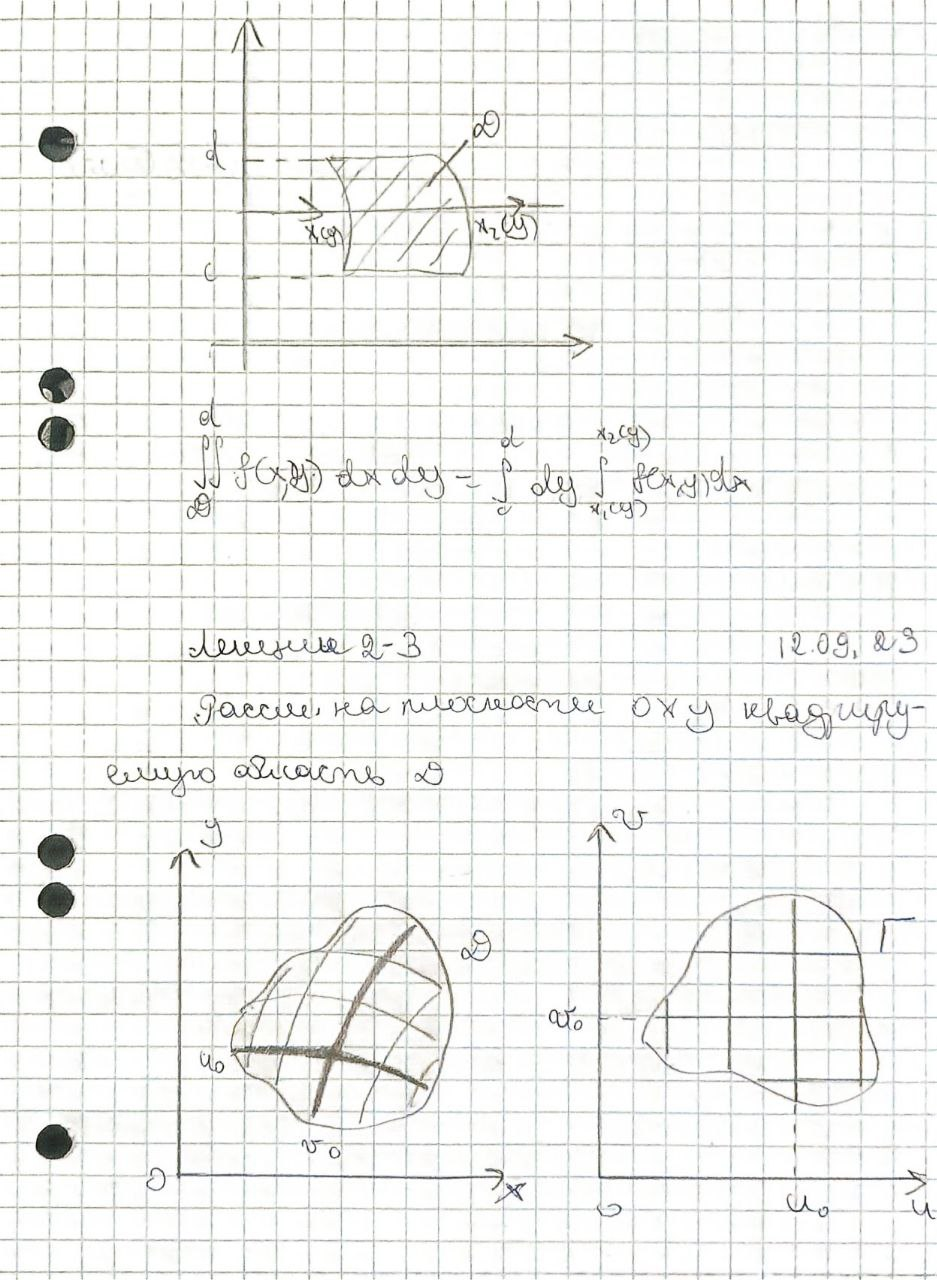 d
D
x₁(y)
x₂(y)
c
d
∬ f(x,y) dx dy = ∫ dy ∫ f(x,y) dx
D c x₁(y)
d x₂(y)
Лекция 2-3 12.09.23
Рассм. на плоскости OXY квадриру-
емую область D
y
D
u₀
v₀
0
x
v
Γ
v₀
0
u₀
u